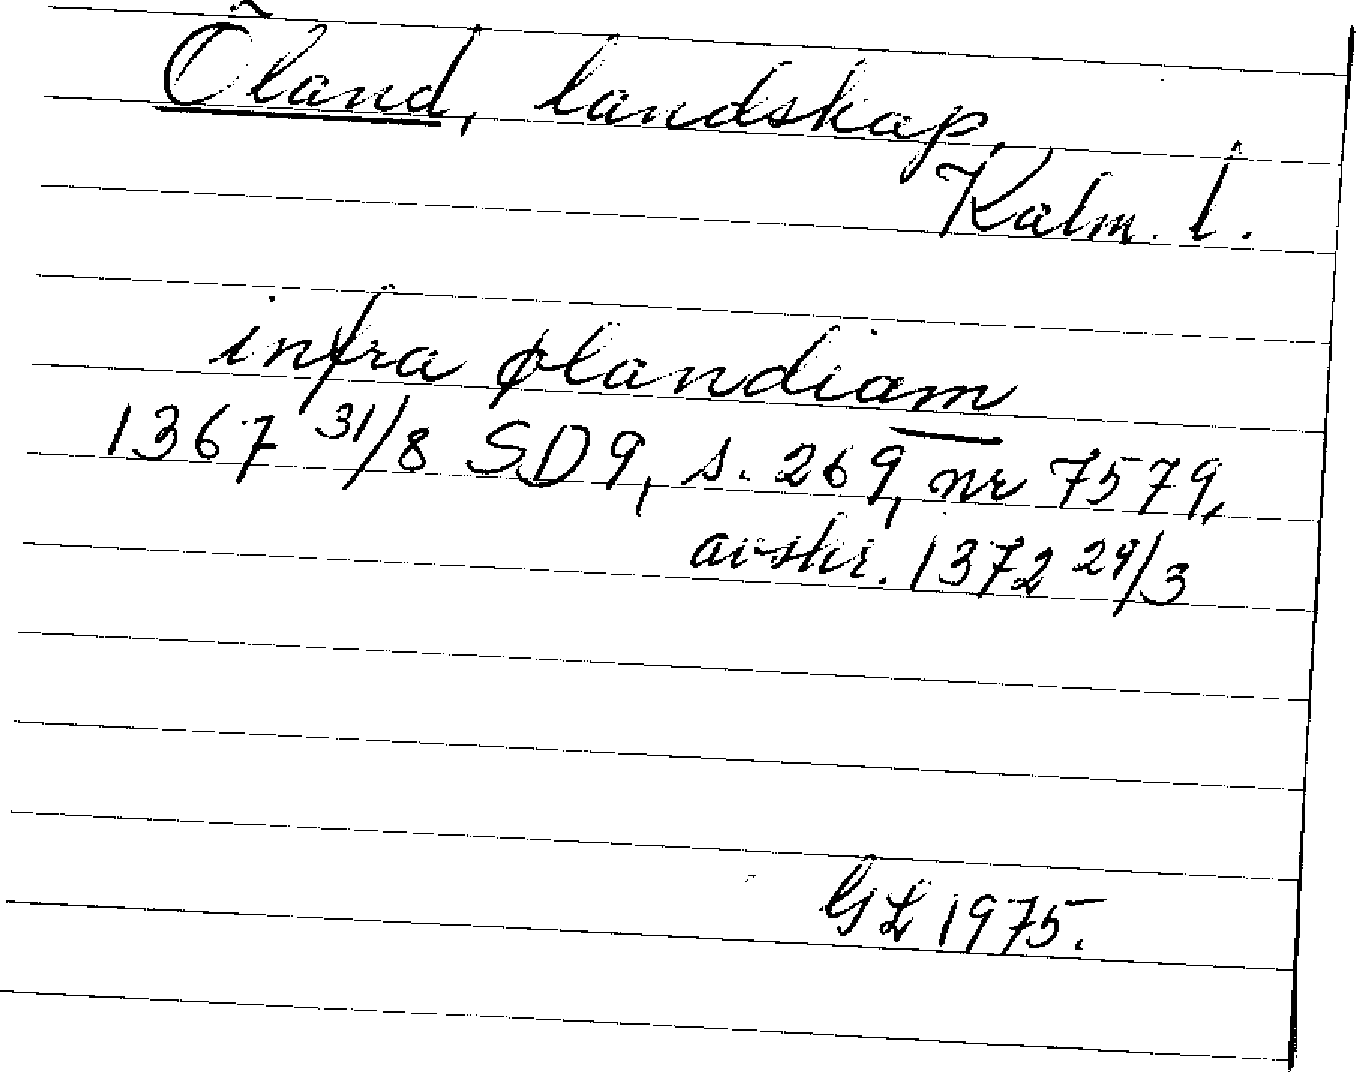 Öland, landskap
Kalm. l.
infra ølandiam
1367 31/8 SD 9, s. 269, nr 7579,
avskr. 1372 29/3
GL 1975.